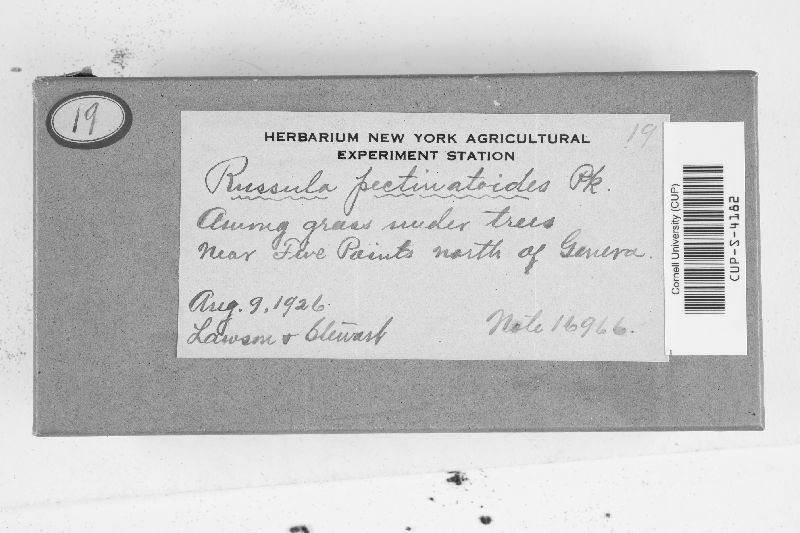 19
HERBARIUM NEW YORK AGRICULTURAL 19
EXPERIMENT STATION
Russula pectinatoides Pk.
Among grass under trees
near Five Points north of Geneva.
Aug. 9, 1926
Lawson & Stewart Note 16966.
Cornell University (CUP)
CUP-S-4182